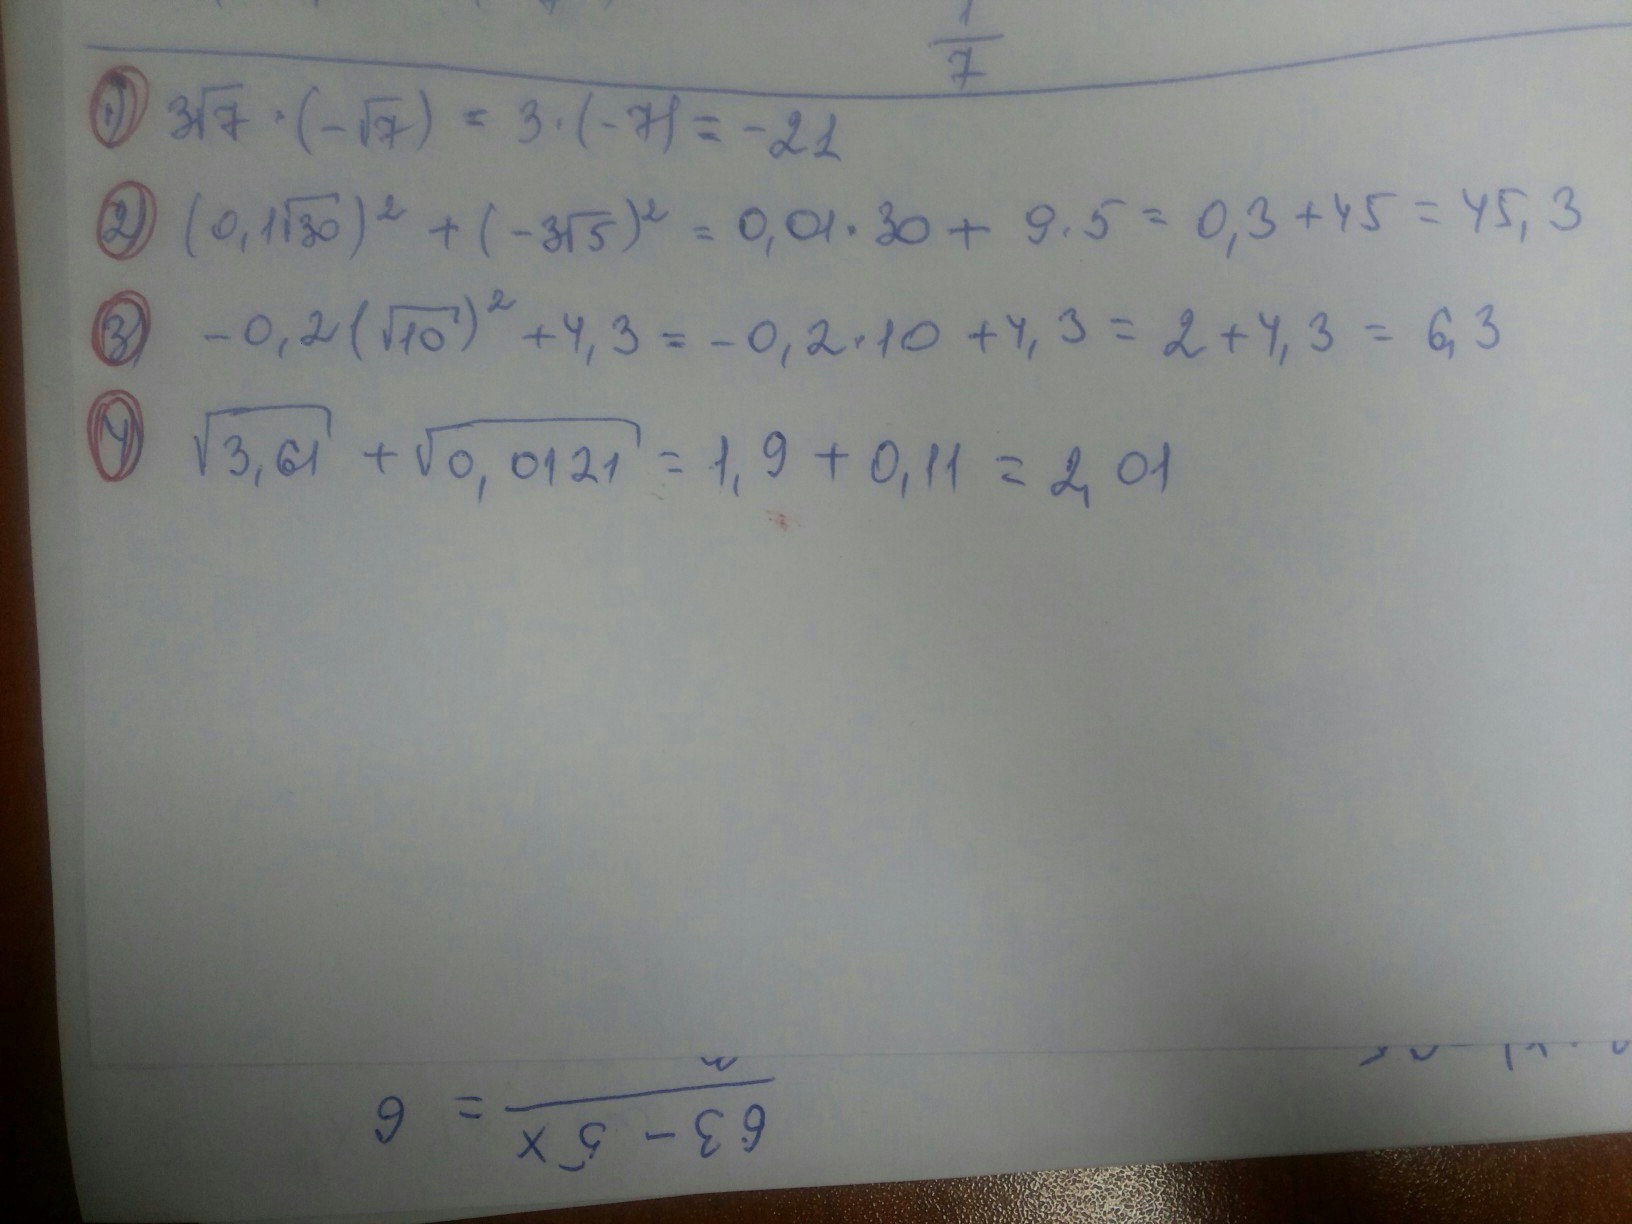 1/7
1) 3√7 · (-√7) = 3 · (-7) = -21
2) (0,1√30)² + (-3√5)² = 0,01 · 30 + 9 · 5 = 0,3 + 45 = 45,3
3) -0,2(√10)² + 4,3 = -0,2 · 10 + 4,3 = 2 + 4,3 = 6,3
4) √3,61 + √0,0121 = 1,9 + 0,11 = 2,01
63 - 5x = 6